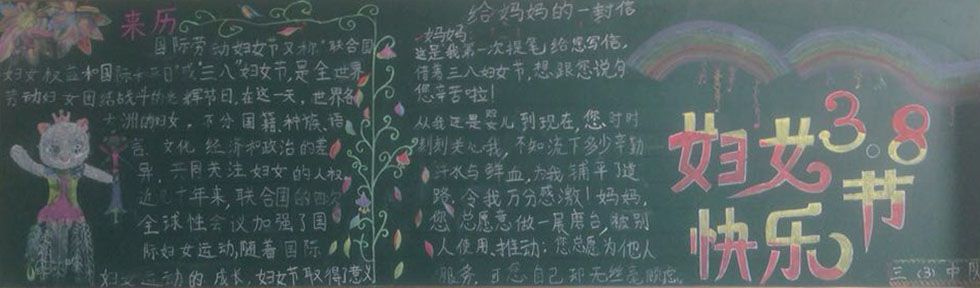 来历
国际劳动妇女节又称"联合国
妇女权益和国际和平日"或"三八"妇女节,是全世界
劳动妇女团结战斗的光辉节日,在这一天,世界各
大洲的妇女,不分国籍、种族、语
言、文化、经济和政治的差
异,共同关注妇女的人权。
近几十年来,联合国的四次
全球性会议加强了国
际妇女运动,随着国际
妇女运动的成长,妇女节取得了意义
给妈妈的一封信
妈妈:
这是我第一次提笔给您写信,
借着三八妇女节,想跟您说句
您辛苦啦!
从我还是婴儿到现在,您时时
刻刻关心我,不知流下多少辛勤
汗水与鲜血,为我铺平了道
路。令我万分感激!妈妈,
您总愿意做一展磨台,被别
人使用,推动;您总愿为他人
服务,可您自己却无丝毫
3.8
妇女节
快乐
三(3)中